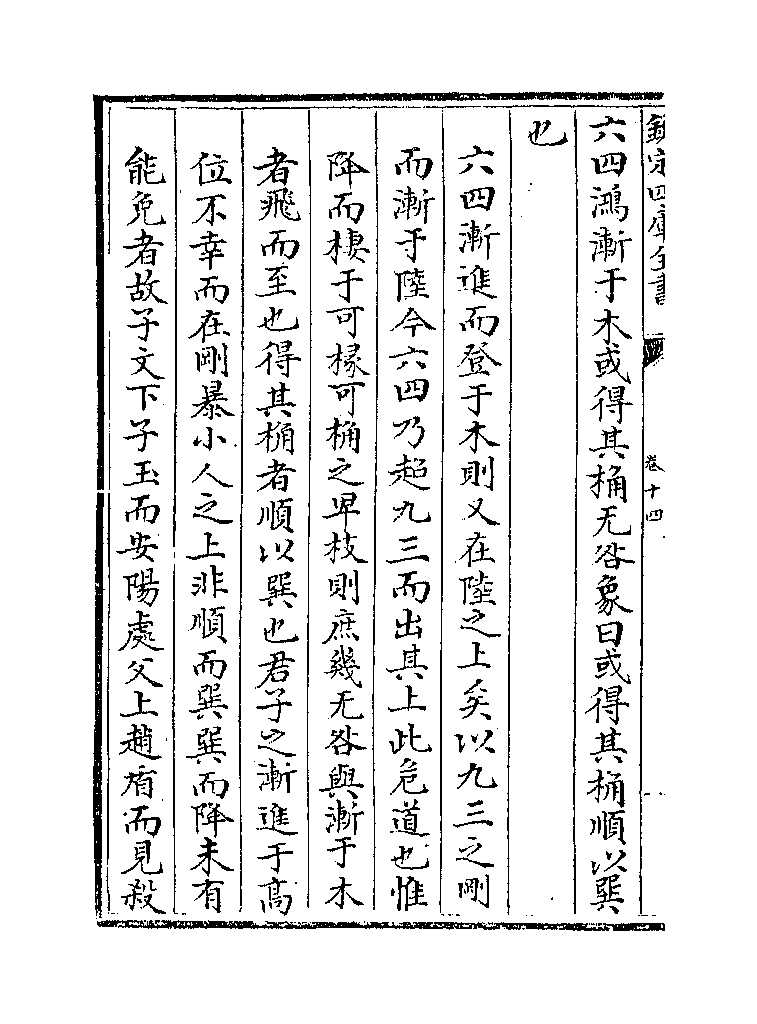 欽定四庫全書
卷十四
六四鴻漸于木或得其桷无咎象曰或得其桷順以巽
也
六四漸進而登于木則又在陸之上矣以九三之剛
而漸于陸今六四乃超九三而出其上此危道也惟
降而棲于可椽可桷之卑枝則庶幾无咎與漸于木
者飛而至也得其桷者順以巽也君子之漸進于高
位不幸而在剛暴小人之上非順而巽巽而降未有
能免者故子文下子玉而安陽處父上趙盾而見殺